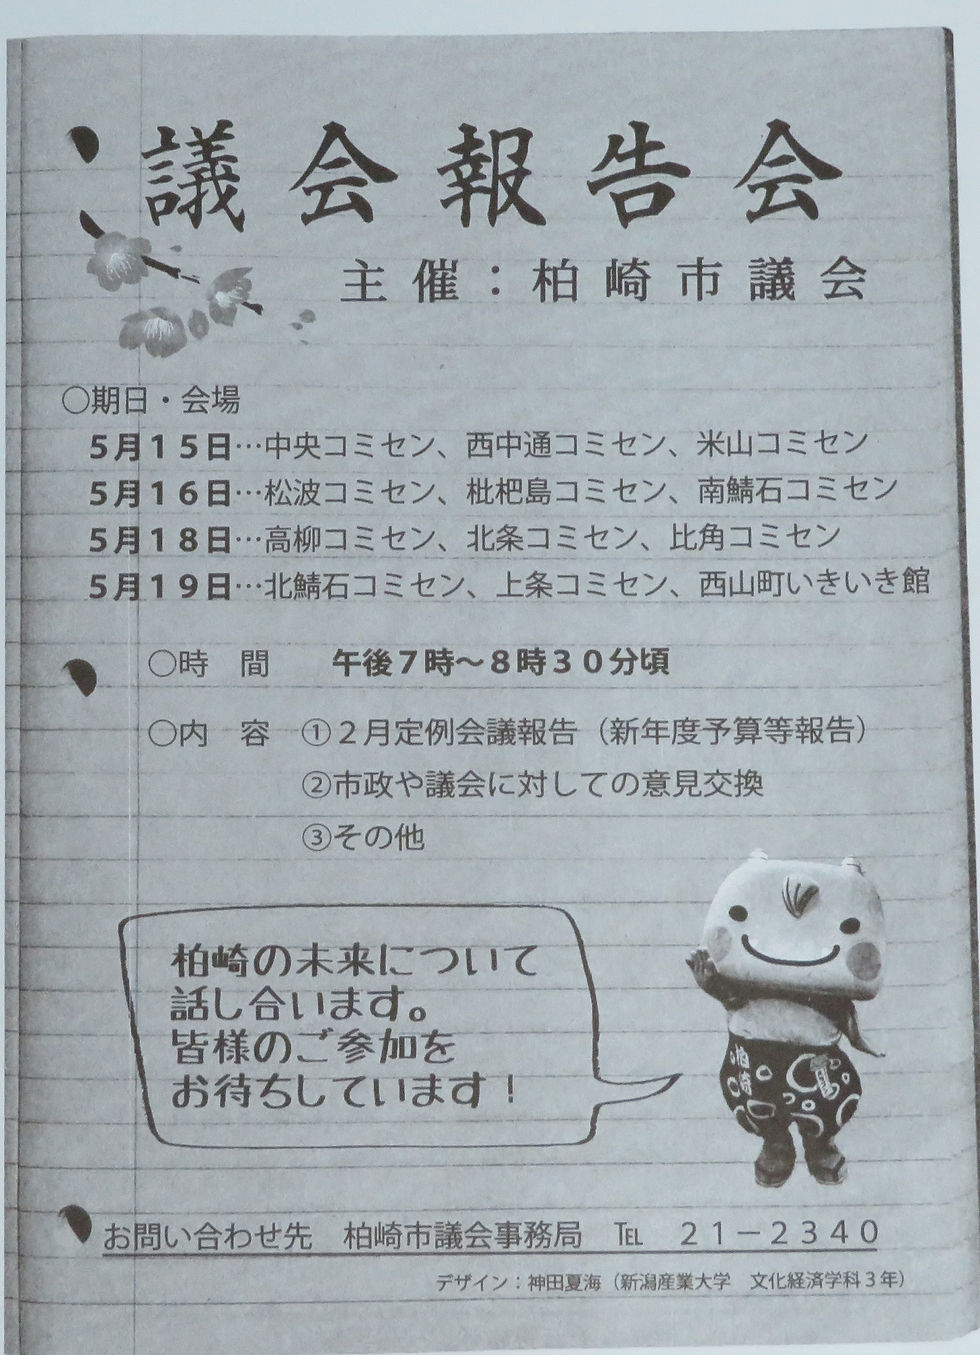 議会報告会
主催：柏崎市議会
○期日・会場
５月１５日…中央コミセン、西中通コミセン、米山コミセン
５月１６日…松波コミセン、枇杷島コミセン、南鯖石コミセン
５月１８日…高柳コミセン、北条コミセン、比角コミセン
５月１９日…北鯖石コミセン、上条コミセン、西山町いきいき館
○時　間　　午後７時～８時３０分頃
○内　容　①２月定例会議報告（新年度予算等報告）
②市政や議会に対しての意見交換
③その他
柏崎の未来について
話し合います。
皆様のご参加を
お待ちしています！
柏崎
お問い合わせ先　柏崎市議会事務局　℡　２１－２３４０
デザイン：神田夏海（新潟産業大学　文化経済学科３年）